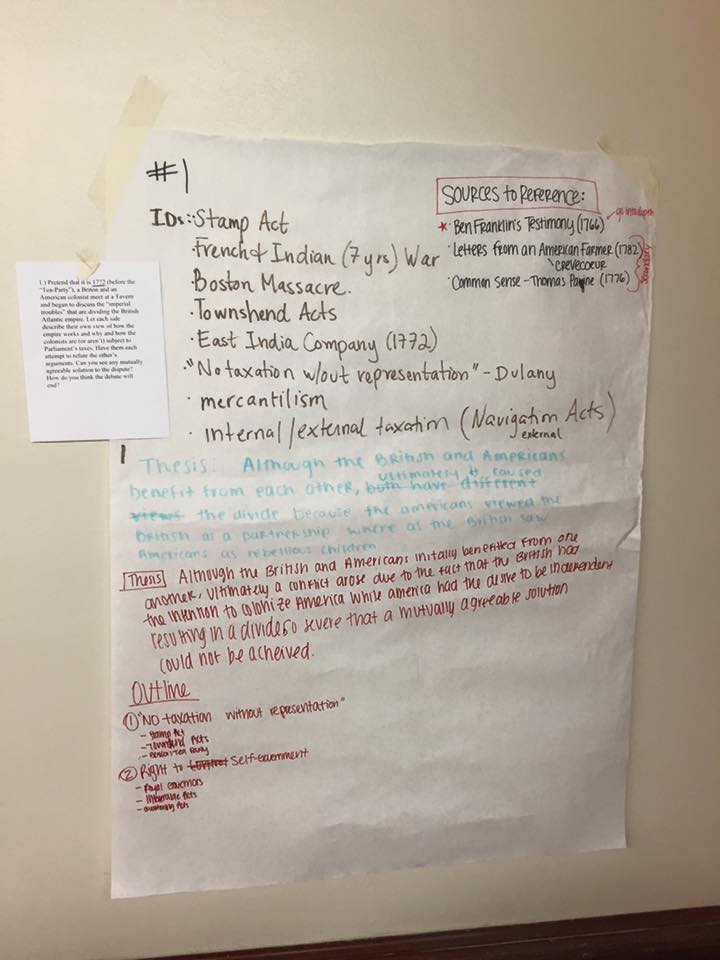 1.) Pretend that it is 1772 (before the
"Tea-Party"), a Briton and an
American colonist meet at a Tavern
and began to discuss the "imperial
troubles" that are dividing the British
Atlantic empire. Let each side
describe their own view of how the
empire works and why and how the
colonists are (or aren't) subject to
Parliament's taxes. Have them each
attempt to refute the other's
arguments. Can you see any mutually
agreeable solution to the dispute?
How do you think the debate will
end?
#1
IDs: Stamp Act
· French & Indian (7 yrs) War
· Boston Massacre.
· Townshend Acts
· East India Company (1772)
· "No taxation w/out representation" - Dulany
· mercantilism
· internal/external taxation (Navigation Acts)
external
SOURCES to REFERENCE:
* · Ben Franklin's Testimony (1766)
· Letters from an American Farmer (1782)
Crevecoeur
· Common Sense - Thomas Paine (1776)
secondary
Thesis: Although the British and Americans
ultimately it caused
benefit from each other, both have different
views the divide because the americans viewed the
British as a partnership where as the British saw
Americans as rebellious children
Thesis Although the British and Americans initally benefited from one
another, ultimately a conflict arose due to the fact that the British had
the intention to colonize America while america had the desire to be independent
resulting in a divide so severe that a mutually agreeable solution
could not be acheived.
OUtline
① "NO taxation without representation"
- Stamp Act
- Townshend Acts
- Boston Tea Party
② Right to Self-Government
- Royal Governors
- Intolerable Acts
- Quartering Acts